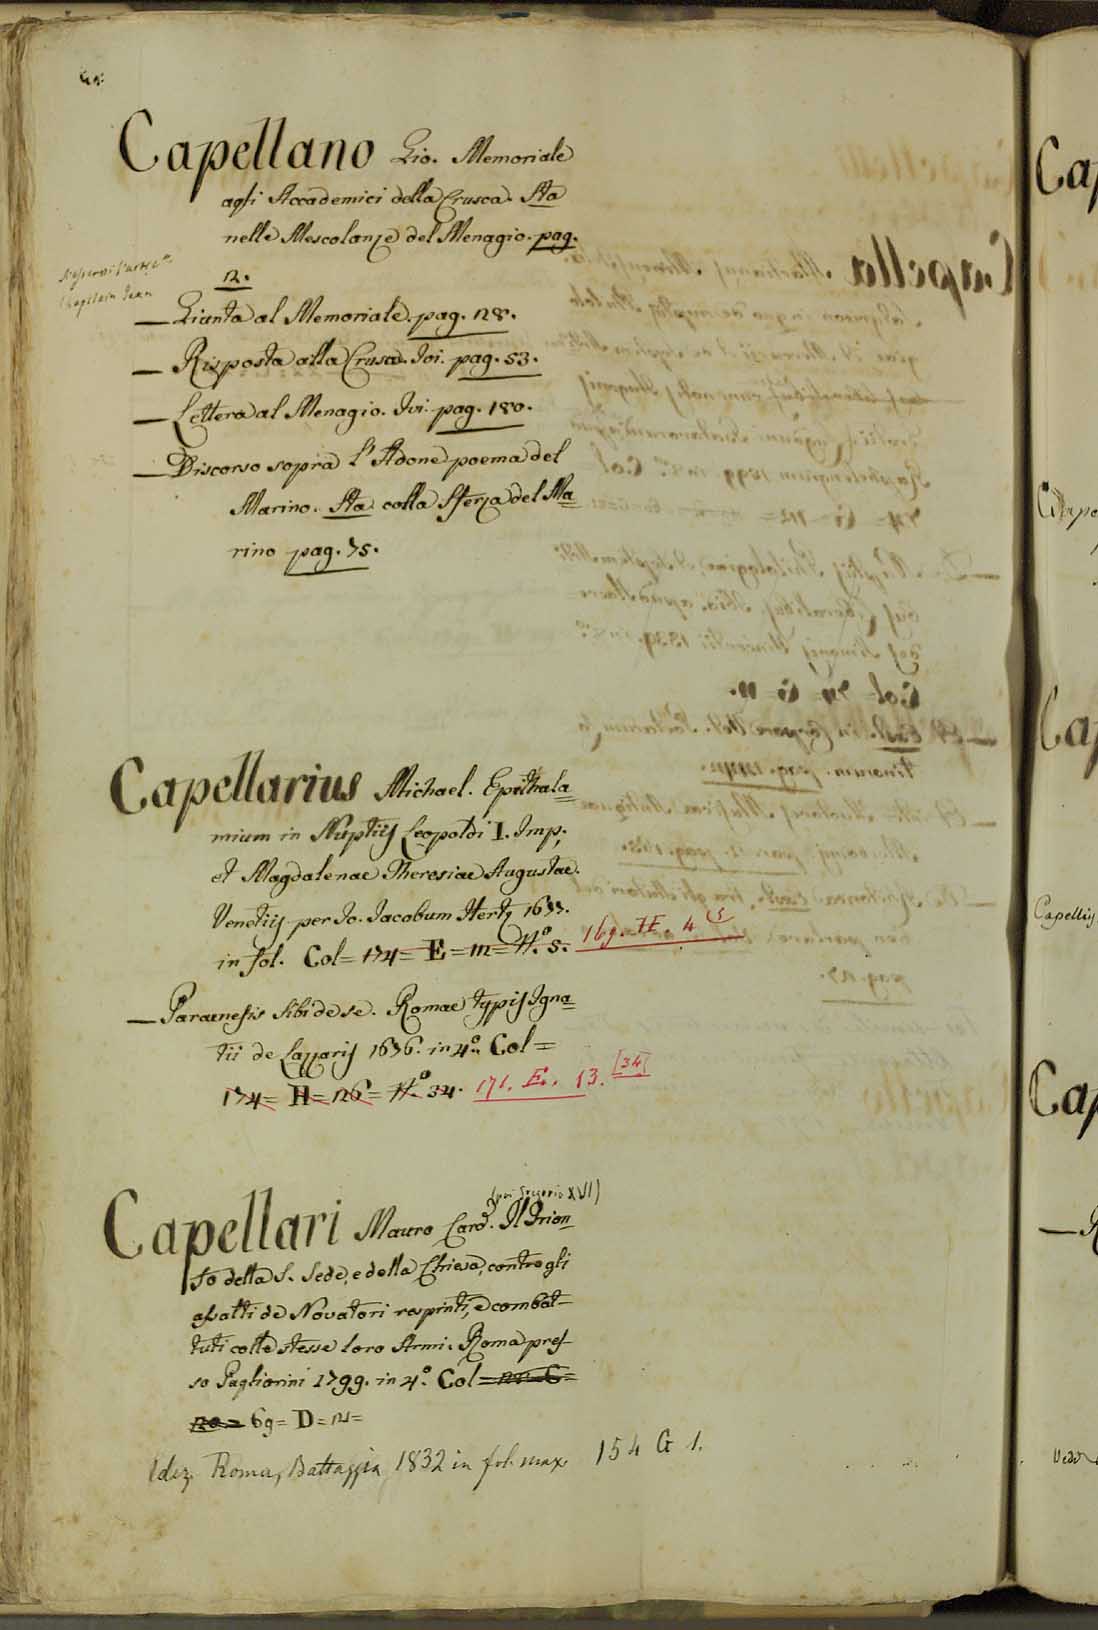 Capellano Gio. Memoriale
agli Accademici della Crusca. Sta
nelle Mescolanze del Menagio. pag.
12.
Chapelain Jean
— Giunta al Memoriale. pag. 128.
— Risposta alla Crusca. Ivi. pag. 53.
— Lettera al Menagio. Ivi. pag. 180.
— Discorso sopra l'Adone poema del
Marino. Sta colla Sferza del Ma
rino pag. 75.
Capellarius Michael. Epithala
mium in Nuptiis Leopoldi I. Imp.
et Magdalenae Theresiae Augustae.
Venetiis per Jo. Jacobum Hertz 1677.
in fol. Col= 174= E= m= N.° 5. 169. H. 4 (5
— Paraenesis sibi de se. Romae typis Igna
tii de Lazzaris 1676. in 4.° Col=
174= H= 126= N.° 34. 171. E. 13. [34]
(poi Gregorio XVI)
Capellari Mauro Card. Il Trion
fo della S. Sede, e della Chiesa, contro gli
assalti de Novatori respinti, e combat-
tuti colle stesse loro Armi. Roma pres-
so Pagliarini 1799. in 4.° Col=
69= D= 12=
Ediz. Roma, Battaggia 1832 in fol. max. 154 G 1.
Cap
Cap
Capellis
Cap